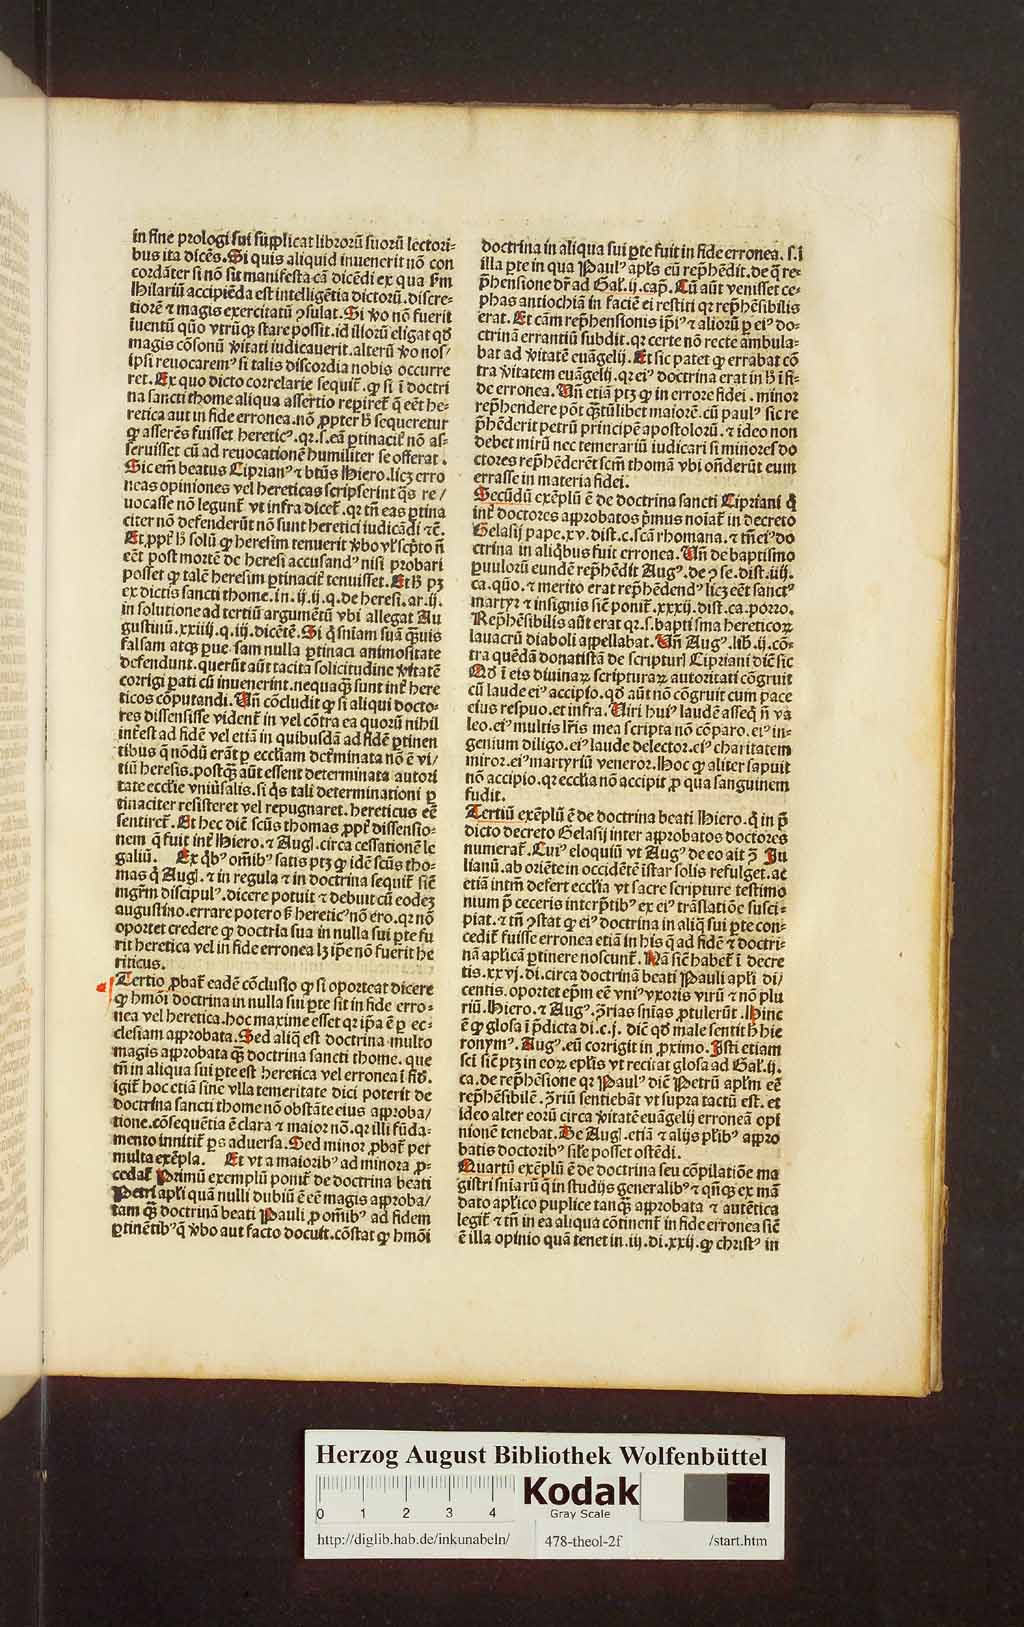 in fine prologi sui supplicat libroꝝ suoꝝ lectori⸗
bus ita dicēs. Si quis aliquid inuenerit nō con
cordāter si nō sit manifesta cā dicēdi ex qua ẜm
Hilariū accipiēda est intelligētia dictorū. discre⸗
tiorē ⁊ magis exercitatū ꝯsulat. Si v̄o nō fuerit
īuentū qūo vtrūqꝫ stare possit. id illorū eligat qd̄
magis cōsonū v̄itati iudicauerit. alterū v̄o nos/
ipsi reuocaremꝰ si talis discordia nobis occurre
ret. Ex quo dicto correlarie sequit᷑. ꝙ si ī doctri
na sancti thome aliqua assertio reꝑiret᷑ q̄ eēt he⸗
retica aut in fide erronea. nō ꝓpter h̄ sequeretur
ꝙ asserēs fuisset hereticꝰ. qꝛ. s. eā ꝑtinacit᷑ nō as⸗
seruisset cū ad reuocationē humiliter se offerat.
Sic em̄ beatus Ciprianꝰ ⁊ btūs Hiero. licꝫ erro
neas opiniones vel hereticas scripserint q̄s re/
uocasse nō legunt᷑ vt infra dicet᷑. qꝛ tn̄ eas ꝑtina
citer nō defenderūt nō sunt heretici iudicādi ⁊c̄.
Et ꝓpt᷑ h̄ solū ꝙ heresim tenuerit v̄bo vl̓ sc̓pto n̄
eēt post mortē de heresi accusandꝰ nisi probari
posset ꝙ talē heresim ꝑtinacit᷑ tenuisset. Et h̄ pꝫ
ex dictis sancti thome. in. ij. ij. q. de heresi. ar. ij.
in solutione ad tertiū argumētū vbi allegat Au
gustinū. xxiiij. q. iij. dicētē. Si q̓ sniam suā q̄uis
falsam atqꝫ ꝑuersam nulla ꝑtinaci animositate
defendunt. querūt aūt tacita solicitudine v̄itatē
corrigi ꝑati cū inuenerint. nequaq̄ sunt int᷑ here
ticos cōputandi. Vn̄ cōcludit ꝙ si aliqui docto⸗
res dissensisse vident᷑ in vel cōtra ea quorū nihil
int᷑est ad fidē vel etiā in quibusdā ad fidē ꝑtinen
tibus q̄ nōdū erāt ꝑ eccl̓iam det᷑minata nō ē vi/
tiū heresis. postq̄ aūt essent determinata autori
tate eccl̓ie vniu̓salis. si q̄s tali determinationi ꝑ
tinaciter resisteret vel repugnaret. hereticus eē
sentiret᷑. Et hec dic̄ scūs thomas ꝓpt᷑ dissensio⸗
nem q̄ fuit int᷑ Hiero. ⁊ Aug̓. circa cessationē le
galiū. Ex q̓bꝰ om̄ibꝰ satis ptꝫ ꝙ idē scūs tho⸗
mas q̓ Aug̓. ⁊ in regula ⁊ in doctrina sequit᷑ sic̄
mgr̄m discipulꝰ. dicere potuit ⁊ debuit cū eodeꝫ
augustino. errare potero ẜ hereticꝰ nō ero. qꝛ nō
oportet credere ꝙ doctria sua in nulla sui ꝑte fu
rit heretica vel in fide erronea lꝫ ip̄e nō fuerit he
riticus.
Tertio ꝓbat᷑ eadē cōclusio ꝙ si oporteat dicere
ꝙ hmōi doctrina in nulla sui ꝑte sit in fide erro⸗
nea vel heretica. hoc maxime esset qꝛ ip̄a ē ꝑ ec⸗
clesiam approbata. Sed aliq̄ est doctrina multo
magis approbata q̄ doctrina sancti thome. que
tn̄ in aliqua sui ꝑte est heretica vel erronea ī fid̓.
igit᷑ hoc etiā sine vlla temeritate dici poterit de
doctrina sancti thome nō obstāte eius approba/
tione. cōsequētia ē clara ⁊ maior nō. qꝛ illi fūda⸗
mento innitit᷑ ꝑs aduersa. Sed minor ꝓbat᷑ per
multa exēpla. Et vt a maioribꝰ ad minora ꝓ⸗
cedat᷑ Primū exemplū ponit᷑ de doctrina beati
Petri apl̓i quā nulli dubiū ē eē magis approba/
tam q̄ doctrinā beati Pauli ꝓ om̄ibꝰ ad fidem
ꝑtinētibꝰ q̄ v̄bo aut facto docuit. cōstat ꝙ hmōi
doctrina in aliqua sui ꝑte fuit in fide erronea. s. ī
illa ꝑte in qua Paulꝰ apl̓s eū rep̄hēdit. de q̄ re⸗
p̄hensione dr̄ ad Gal̓. ij. cap̄. Cū aūt venisset ce⸗
phas antiochiā in faciē ei restiti qꝛ rep̄hēsibilis
erat. Et cām rep̄hensionis ip̄iꝰ ⁊ aliorū ꝑ eiꝰ do⸗
ctrinā errantiū subdit. qꝛ certe nō recte ambula⸗
bat ad v̄itatē euāgelij. Et sic patet ꝙ errabat cō
tra v̄itatem euāgelij. qꝛ eiꝰ doctrina erat in h̄ ī fi⸗
de erronea. Vn̄ etiā ptꝫ ꝙ in errore fidei. minor
rep̄hendere pōt q̄ntūlibet maiorē. cū paulꝰ sic re
p̄hēderit petrū principē apostolorū. ⁊ ideo non
debet mirū nec temerariū iudicari si minores do
ctores rep̄hēderēt scm̄ thomā vbi on̄derūt eum
errasse in materia fidei.
Secūdū exēplū ē de doctrina sancti Cipriani q̓
int᷑ doctores approbatos p̄mus noiat᷑ in decreto
Gelasij pape. xv. dist. c. scā rhomana. ⁊ tn̄ eiꝰ do
ctrina in aliq̓bus fuit erronea. Vn̄ de baptismo
ꝑuulorū eundē rep̄hēdit Augꝰ. de ꝯse. dist. iiij.
ca. q̄uo. ⁊ merito erat rep̄hēdendꝰ licꝫ eēt sanctꝰ
martyr ⁊ insignis sic̄ ponit᷑. xxxij. dist. ca. porro.
Rep̄hēsibilis aūt erat qꝛ. s. baptisma hereticoꝝ
lauacrū diaboli appellabat. Vn̄ Augꝰ. lib̓. ij. cō⸗
tra quēdā donatistā de scripturis Cipriani dic̄ sic
Qd̓ ī eis diuinaꝝ scripturaꝝ autoritati cōgruit
cū laude eiꝰ accipio. qd̓ aūt nō cōgruit cum pace
eius respuo. et infra. Viri huiꝰ laudē asseq̓ n̄ va
leo. eiꝰ multis lr̄is mea scripta nō cōparo. eiꝰ in⸗
genium diligo. eiꝰ laude delector. eiꝰ charitatem
miror. eiꝰ martyriū veneror. Hoc ꝙ aliter sapuit
nō accipio. qꝛ eccl̓ia nō accipit ꝓ qua sanguinem
fudit.
Tertiū exēplū ē de doctrina beati Hiero. q̓ in p̄
dicto decreto Gelasij inter approbatos doctores
numerat᷑. Cuiꝰ eloquiū vt Augꝰ de eo ait ꝯ Ju
lianū. ab oriēte in occidētē īstar solis refulget. ac
etiā intm̄ defert eccl̓ia vt sacre scripture testimo
nium p̄ ceceris interp̄tibꝰ ex eiꝰ trāslatiōe susci⸗
piat. ⁊ tn̄ ꝯstat ꝙ eiꝰ doctrina in aliq̄ sui ꝑte con⸗
cedit᷑ fuisse erronea etiā in his q̄ ad fidē ⁊ doctri⸗
nā aplicā ꝑtinere noscunt᷑. Nā sic̄ habet᷑ ī decre
tis. xxvj. di. circa doctrinā beati Pauli apl̓i di/
centis. oportet ep̄m eē vniꝰ vxoris virū ⁊ nō plu
riū. Hiero. ⁊ Augꝰ. ꝯ̄rias snīas ꝓtulerūt. Hinc
ē ꝙ glosa ī p̄dicta di. c. j. dic̄ qd̓ male sentit h̄ hie
ronymꝰ. Augꝰ. eū corrigit in ꝓximo. Isti etiam
sc̄i sic̄ ptꝫ in eoꝝ epl̓is vt recitat glosa ad Gal̓. ij.
ca. de rep̄hēsione qꝛ Paulꝰ dic̄ Petrū apl̓m eē
rep̄hēsibilē. ꝯ̄riū sentiebāt vt supra tactū est. et
ideo alter eorū circa v̄itatē euāgelij erroneā opi
nionē tenebat. De Aug̓. etiā ⁊ alijs pl̓ribꝰ appro
batis doctoribꝰ sil̓e posset ostēdi.
Quartū exēplū ē de doctrina seu cōpilatiōe ma
gistri sniarū q̄ in studijs generalibꝰ ⁊ qn̄qꝫ ex mā
dato apl̓ico puplice tanq̄ approbata ⁊ autētica
legit᷑ ⁊ tn̄ in ea aliqua cōtinent᷑ in fide erronea sic̄
ē illa opinio quā tenet in. iij. di. xxij. ꝙ christꝰ in
Herzog August Bibliothek Wolfenbüttel
0 1 2 3 4
Kodak
Gray Scale
http://diglib.hab.de/inkunabeln/ 478-theol-2f /start.htm